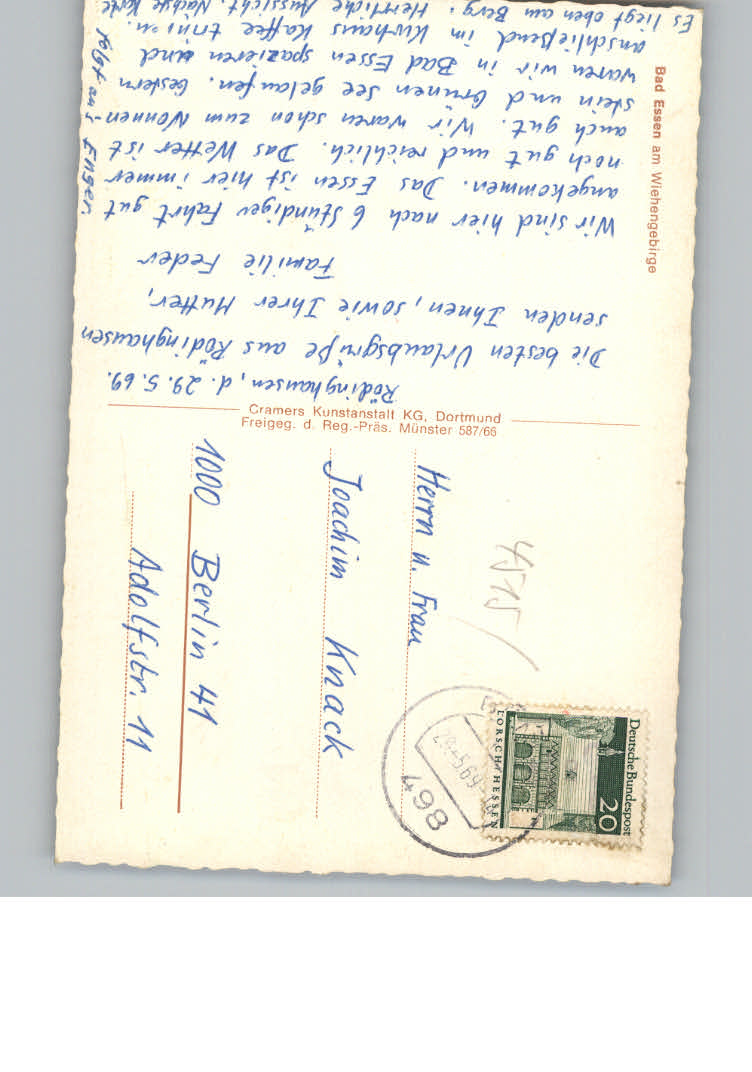 Bad Essen am Wiehengebirge
Rödinghausen, d. 29.5.69.
Die besten Urlaubsgrüße aus Rödinghausen
senden Ihnen, sowie Ihrer Mutter,
Familie Feder
Wir sind hier nach 6 stündiger Fahrt gut
angekommen. Das Essen ist hier immer
noch gut und reichlich. Das Wetter ist
auch gut. Wir waren schon zum Nonnen-
stein und Grünen See gelaufen. Gestern
waren wir in Bad Essen spazieren und
anschließend im Kurhaus Kaffee trinken.
Es liegt oben am Berg. Herrliche Aussicht. Nächste Karte
folgt aus Enger.
Cramers Kunstanstalt KG, Dortmund
Freigeg. d. Reg.-Präs. Münster 587/66
Herrn u. Frau
Joachim Knack
1000 Berlin 41
Adolfstr. 11
4515/
Deutsche Bundespost
20
LORSCH/HESSEN
498